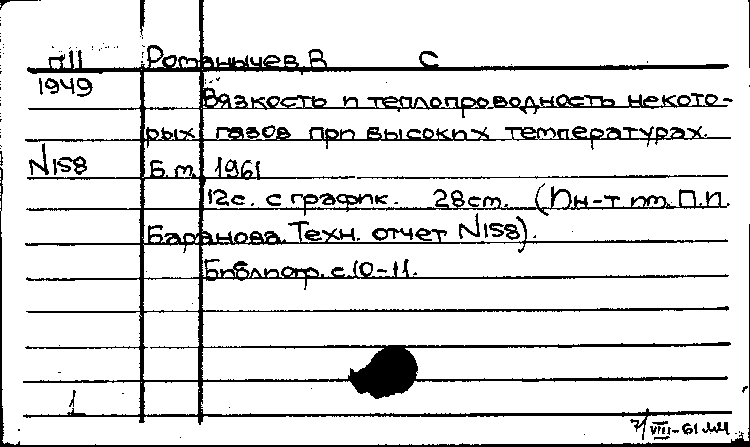 п11 Романычев, В С
1949
Вязкость и теплопроводность некото-
рых газов при высоких температурах.
N158 Б.м. 1961
12с. с график. 28см. (Ин-т им. П.И.
Баранова. Техн. отчет N158).
Библиогр. с.10-11.
1
7/VIII-61 мм